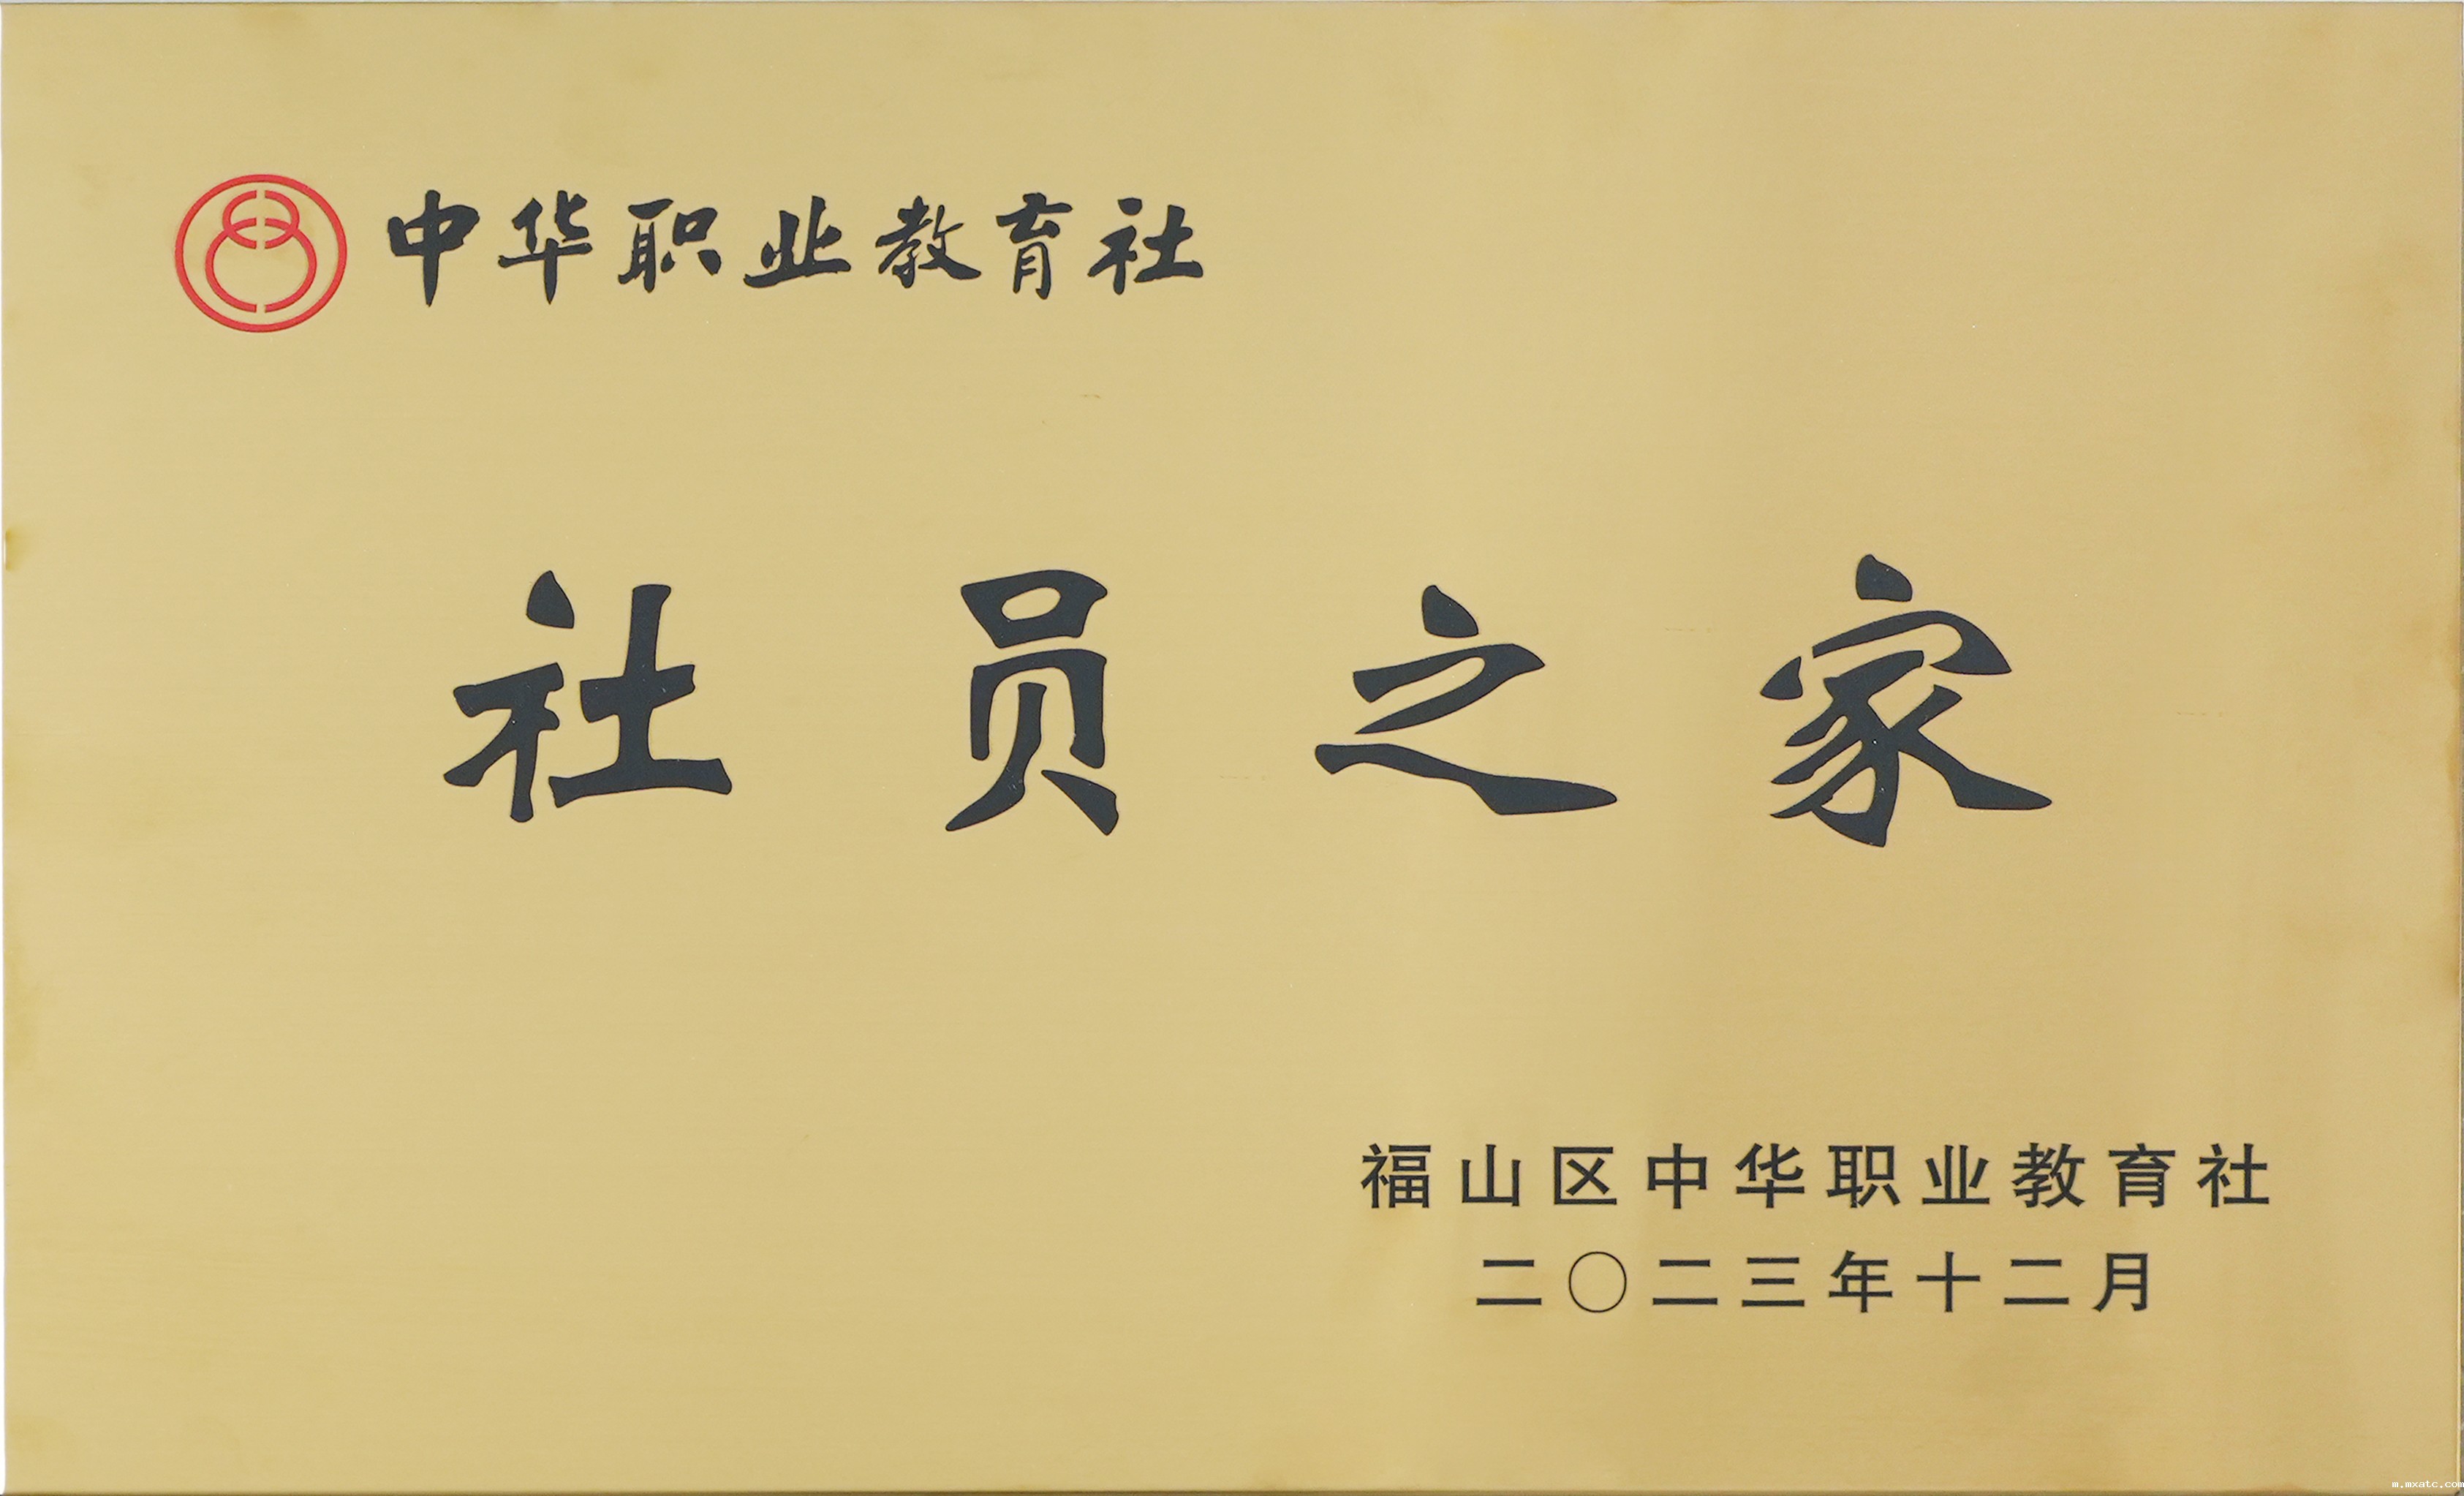 中华职业教育社
社员之家
福山区中华职业教育社
二〇二三年十二月
m.mxatc.com